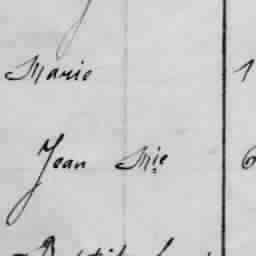 Marie 1
Jean Mie 6